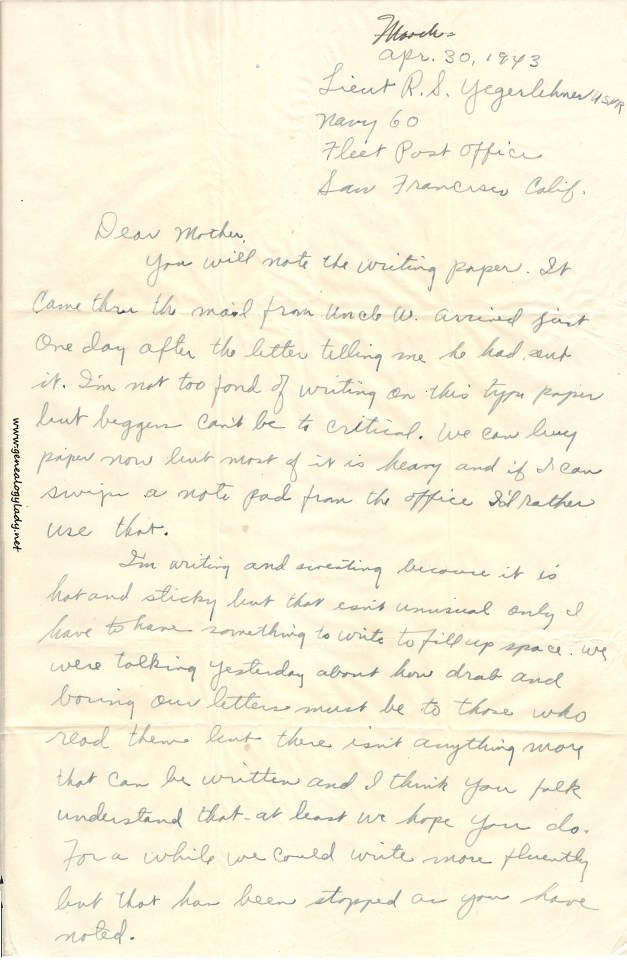 March
Apr. 30, 1943
Lieut R. S. Yegerlehner USNR
Navy 60
Fleet Post Office
San Francisco Calif.
Dear Mother,
You will note the writing paper. It
came thru the mail from Uncle W. arrived just
one day after the letter telling me he had sent
it. I'm not too fond of writing on this type paper
but beggers can't be to critical. We can buy
paper now but most of it is heavy and if I can
swipe a note pad from the office I'd rather
use that.
I'm writing and sweating because it is
hot and sticky but that isn't unusual only I
have to have something to write to fill up space. We
were talking yesterday about how drab and
boring our letters must be to those who
read them but there isn't anything more
that can be written and I think you folk
understand that - at least we hope you do.
For a while we could write more fluently
but that has been stopped as you have
noted.
www.genealogylady.net